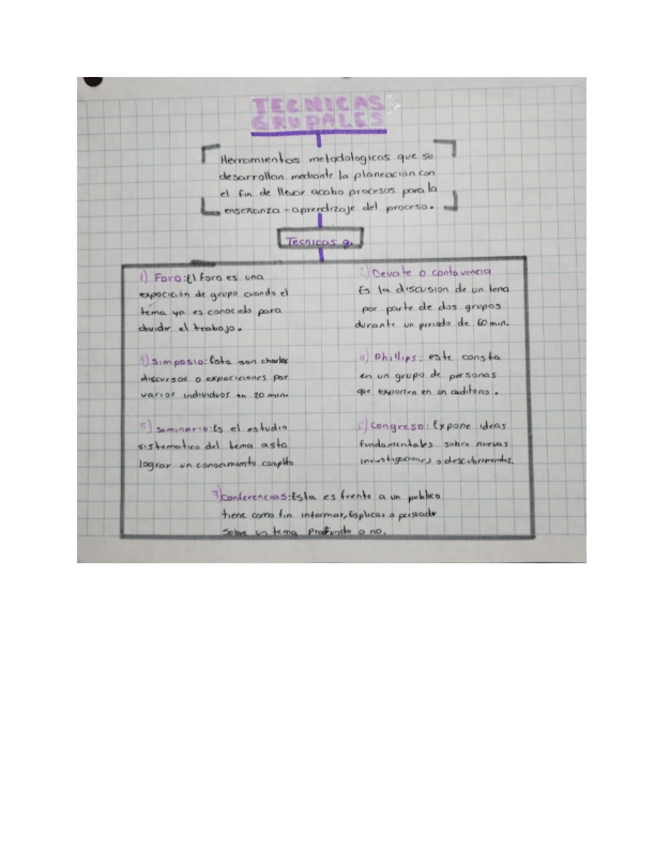 TECNICAS
GRUPALES
Herramientas metodologicas que se
desarrollan mediante la planeación con
el fin de llevar acabo procesos para la
enseñanza - aprendizaje del proceso.
Tecnicas g.
1) Foro: El foro es una
exposición de grupo cuando el
tema ya es conocido para
dividir el trabajo.
2) Devate o contovencia
Es la discusion de un tema
por parte de dos grupos
durante un periodo de 60 min.
3) Simposio: Esta son charlas
discursos o exposiciones por
varios individuos en 20 min.
4) Phillips: este consta
en un grupo de personas
que exponen en un auditorio.
5) Seminario: Es el estudio
sistematico del tema asta
lograr un conocimiento completo
6) Congreso: Expone ideas
fundamentales sobre nuevas
investigaciones o descubrimientos.
7) Conferencias: Esta es frente a un publico
tiene como fin informar, Esplicar o persuadir
sobre un tema Profundo o no.